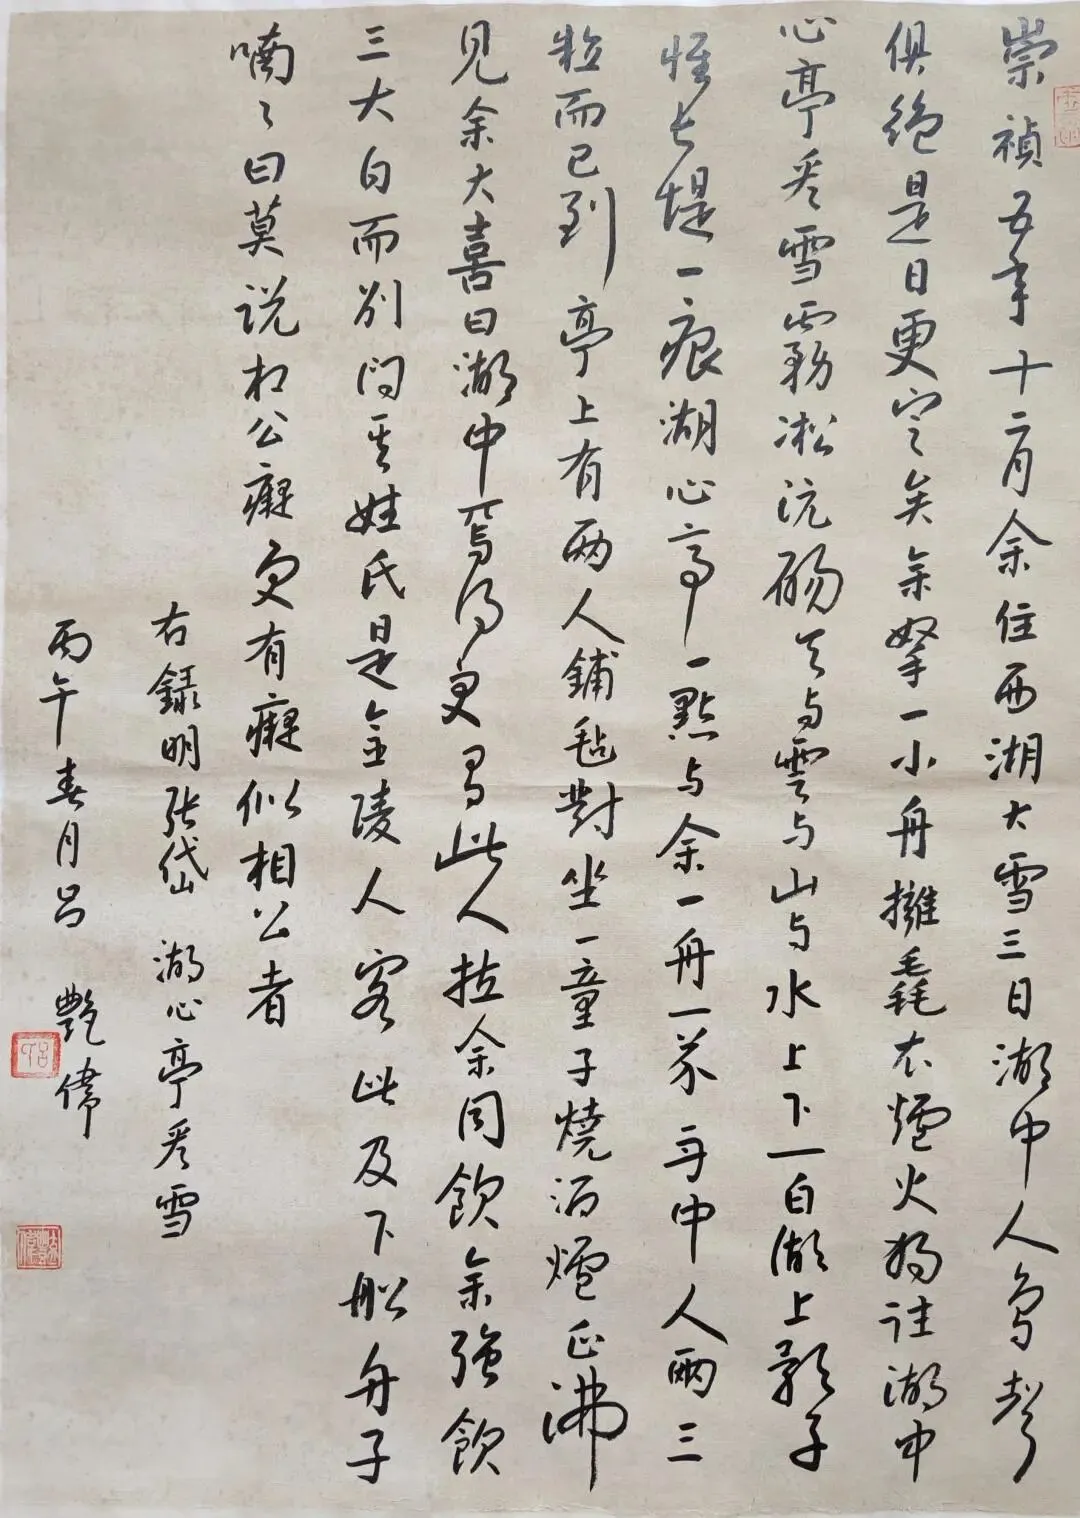 崇禎五年十二月余住西湖大雪三日湖中人鳥聲
俱絕是日更定矣余拏一小舟擁毳衣爐火獨往湖中
心亭看雪霧凇沆碭天與雲與山與水上下一白湖上影子
惟長堤一痕湖心亭一點與余一舟一芥舟中人兩三
粒而已到亭上有兩人鋪毡對坐一童子燒酒爐正沸
見余大喜曰湖中焉得更有此人拉余同飲余強飲
三大白而別問其姓氏是金陵人客此及下船舟子
喃々曰莫說相公癡更有癡似相公者
右錄明張岱 湖心亭看雪
丙午春月呂艷偉